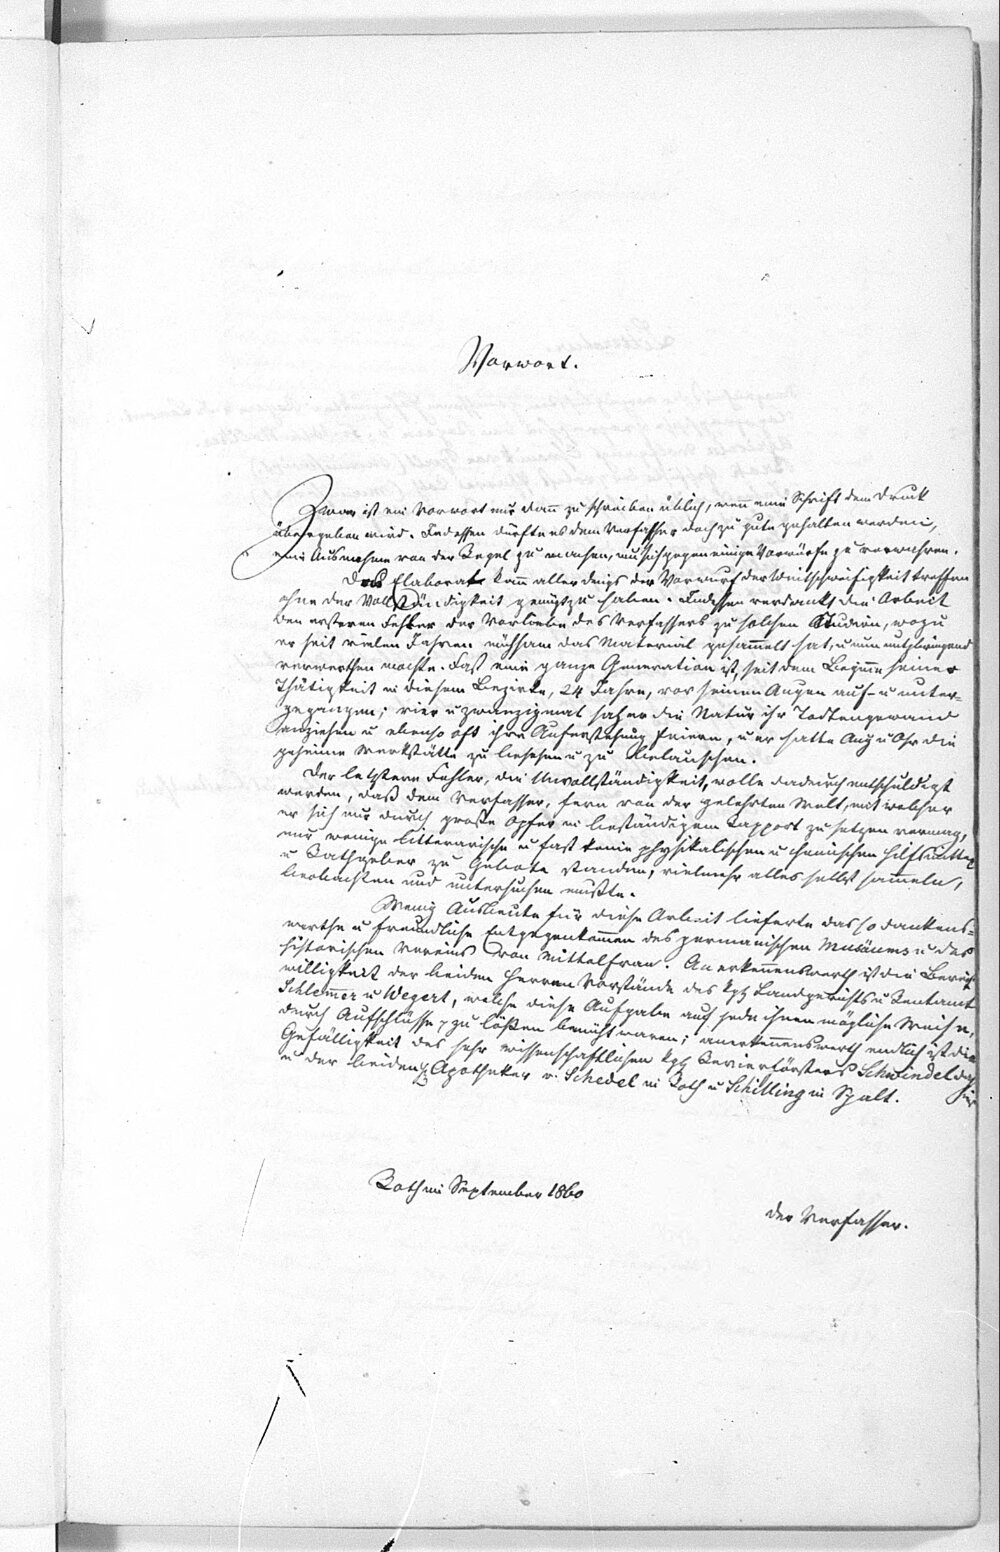 Vorwort.
Zwar ist ein Vorwort nur dann zu schreiben üblich, wenn eine Schrift dem Druck
übergeben wird. Indessen dürfte es dem Verfasser doch zu gute gehalten werden,
eine Ausnahme von der Regel zu machen, um sich gegen einige Vorwürfe zu verwahren.
Das Elaborat kann allerdings der Vorwurf der Weitschweifigkeit treffen
ohne der Vollständigkeit genügt zu haben. Indessen verdankt die Arbeit
den ersteren Fehler der Vorliebe des Verfassers zu solchen Studien, wozu
er seit vielen Jahren mühsam das Material gesammelt hat, u nun nutzbringend
verwerthen möchte. Fast eine ganze Generation ist, seit dem Beginne seiner
Thätigkeit in diesem Bezirke, 24 Jahre, vor seinen Augen auf- u unter-
gegangen; vier u zwanzigmal sah er die Natur ihr Todtengewand
anziehen u ebenso oft ihre Auferstehung feiern, u er hatte Aug u Ohr die
geheime Werkstätte zu besehen u zu belauschen.
Der letztere Fehler, die Unvollständigkeit, wolle dadurch entschuldigt
werden, daß dem Verfasser, fern von der gelehrten Welt, mit welcher
er sich nur durch große Opfer in beständigem Rapport zu setzen vermag,
nur wenige litterarische u fast keine physikalischen u chemischen Hilfsmittel
u Rathgeber zu Gebote standen, vielmehr alles selbst sammeln,
beobachten und untersuchen mußte.
Wenig Ausbeute für diese Arbeit lieferte das so dankens-
werthe u freundliche Entgegenkommen des germanischen Musäums u des
historischen Vereins von Mittelfran. Anerkennenswerth ist die Bereit-
willigkeit der beiden Herren Vorstände des kgl Landgerichts u Rentamt
Schlemmer u Wegert, welche diese Aufgabe auf jede ihnen mögliche Weise,
durch Aufschlüsse zu lößen bemüht waren; anerkennenswerth endlich ist die
Gefälligkeit des sehr wissenschaftlichen kgl Revierförsters Schwindel
u der beiden Apotheker v. Schedel in Roth u Schilling in Spalt.
Roth im September 1860
der Verfasser.